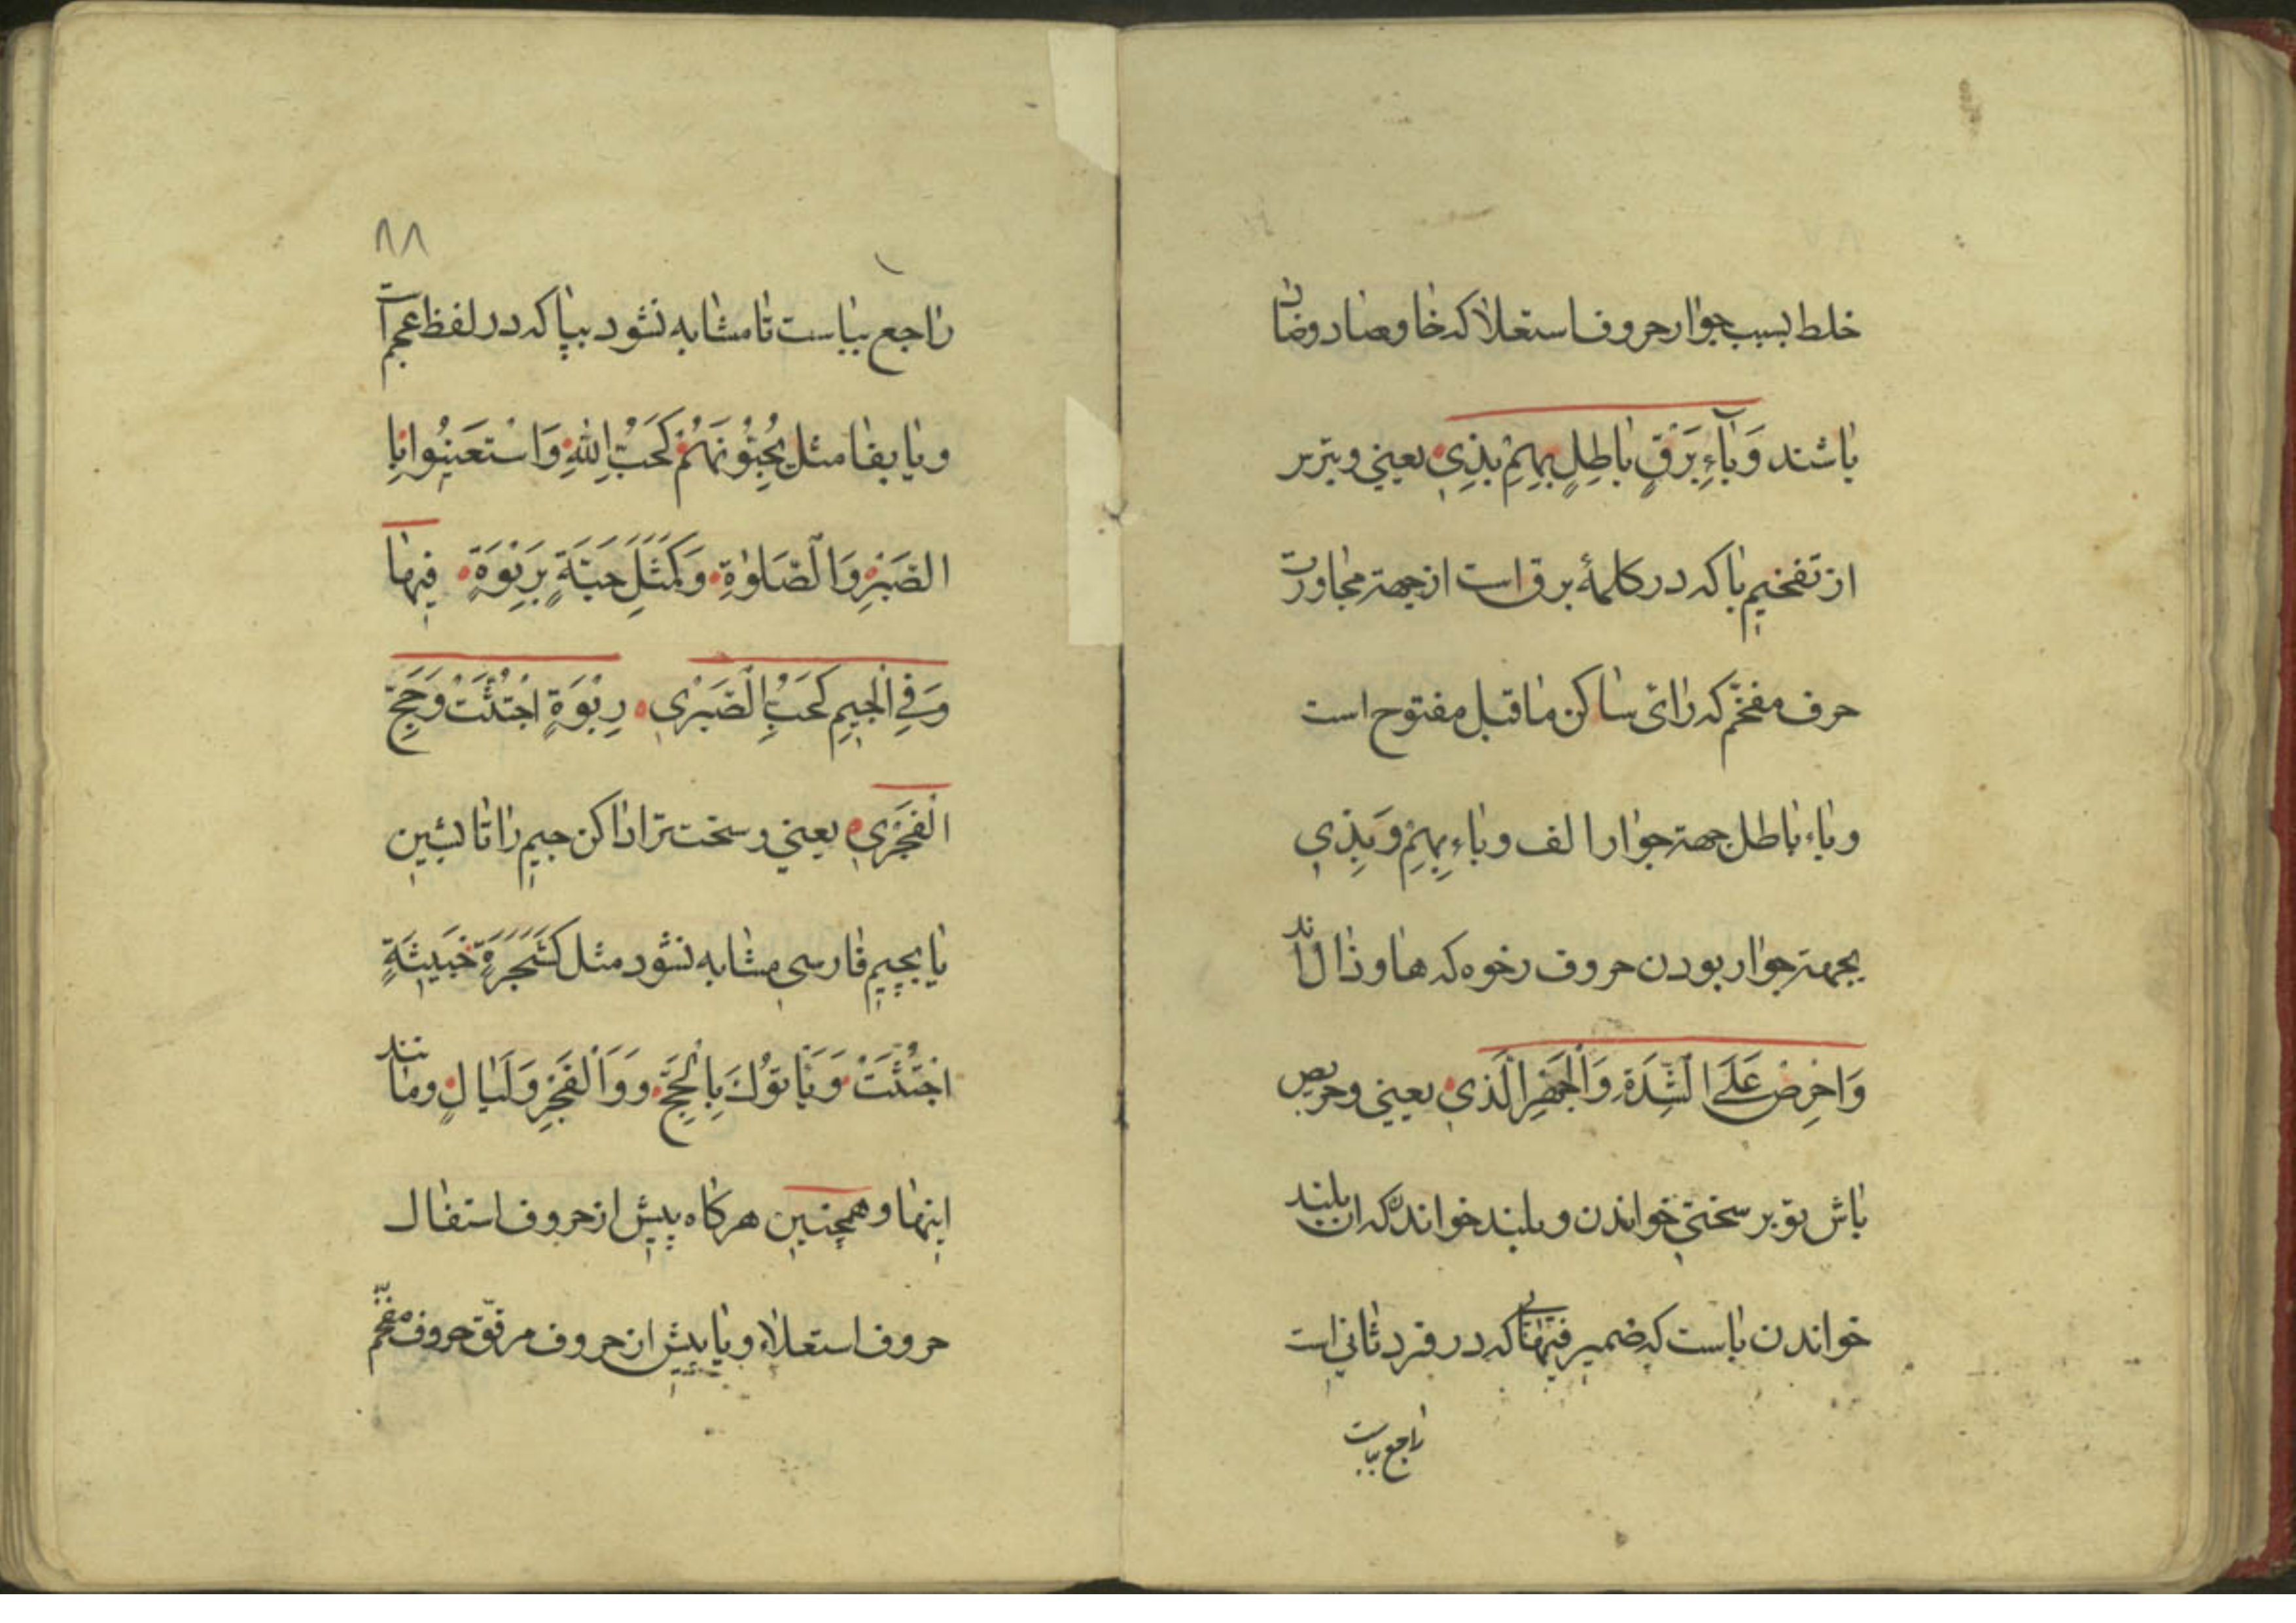 خلط بسبب جوار حروف استعلا که خا و صاد و ضا
باشند وَبَآءِ بَرْقٍ بَاطِلٍ بِهِمْ بِذِي يعني و بترس
از تفخیم با که در کلمهٔ برق است از جهة مجاورت
حرف مفخّم که رائ ساکن ماقبل مفتوح است
و باء باطل جهة جوار الف و باء بِهِمْ وَ بِذِي
بجهة جوار بودن حروف رخوه که ها و ذال اند
وَاحْرِصْ عَلَى الشِّدَةِ وَالْجَهْرِ الَّذي يعني و حریص
باش تو بر سختي خواندن و بلند خواندن که ان بلند
خواندن با است که ضمیر فیها که در فرد ثاني است
راجع بباست
٨٨
راجع بباست تا مشابه نشود بپا که در لفظ عجم است
و يا بفا مثل يُحِبُّوْنَهُمْ كَحُبِّ اللهِ وَاسْتَعِينُوا بِا
الصَّبْرِ وَالصَّلٰوةِ وَكَمَثَلِ حَبَّةٍ بِرَبْوَةٍ فيها
وَفِي الْجِيمِ كَحُبِّ الْصَبْرِي رَبْوَةٍ اجْتُثَّتْ وَحَجِّ
الْفَجْرِي يعني و سخت تر ادا کن جیم را تا بشین
یا بچیم فارسی مشابه نشود مثل كَشَجَرَةٍ خَبيثَةٍ
اجْتُثَّتْ وَ يَأتوُكَ بِالْحَجِّ وَ وَالْفَجْرِ وَلَيَالٍ و مانند
اینها و همچنین هرکاه پیش از حروف استفال
حروف استعلاء و یا پیش از حروف مرقّق حروف مفخّم